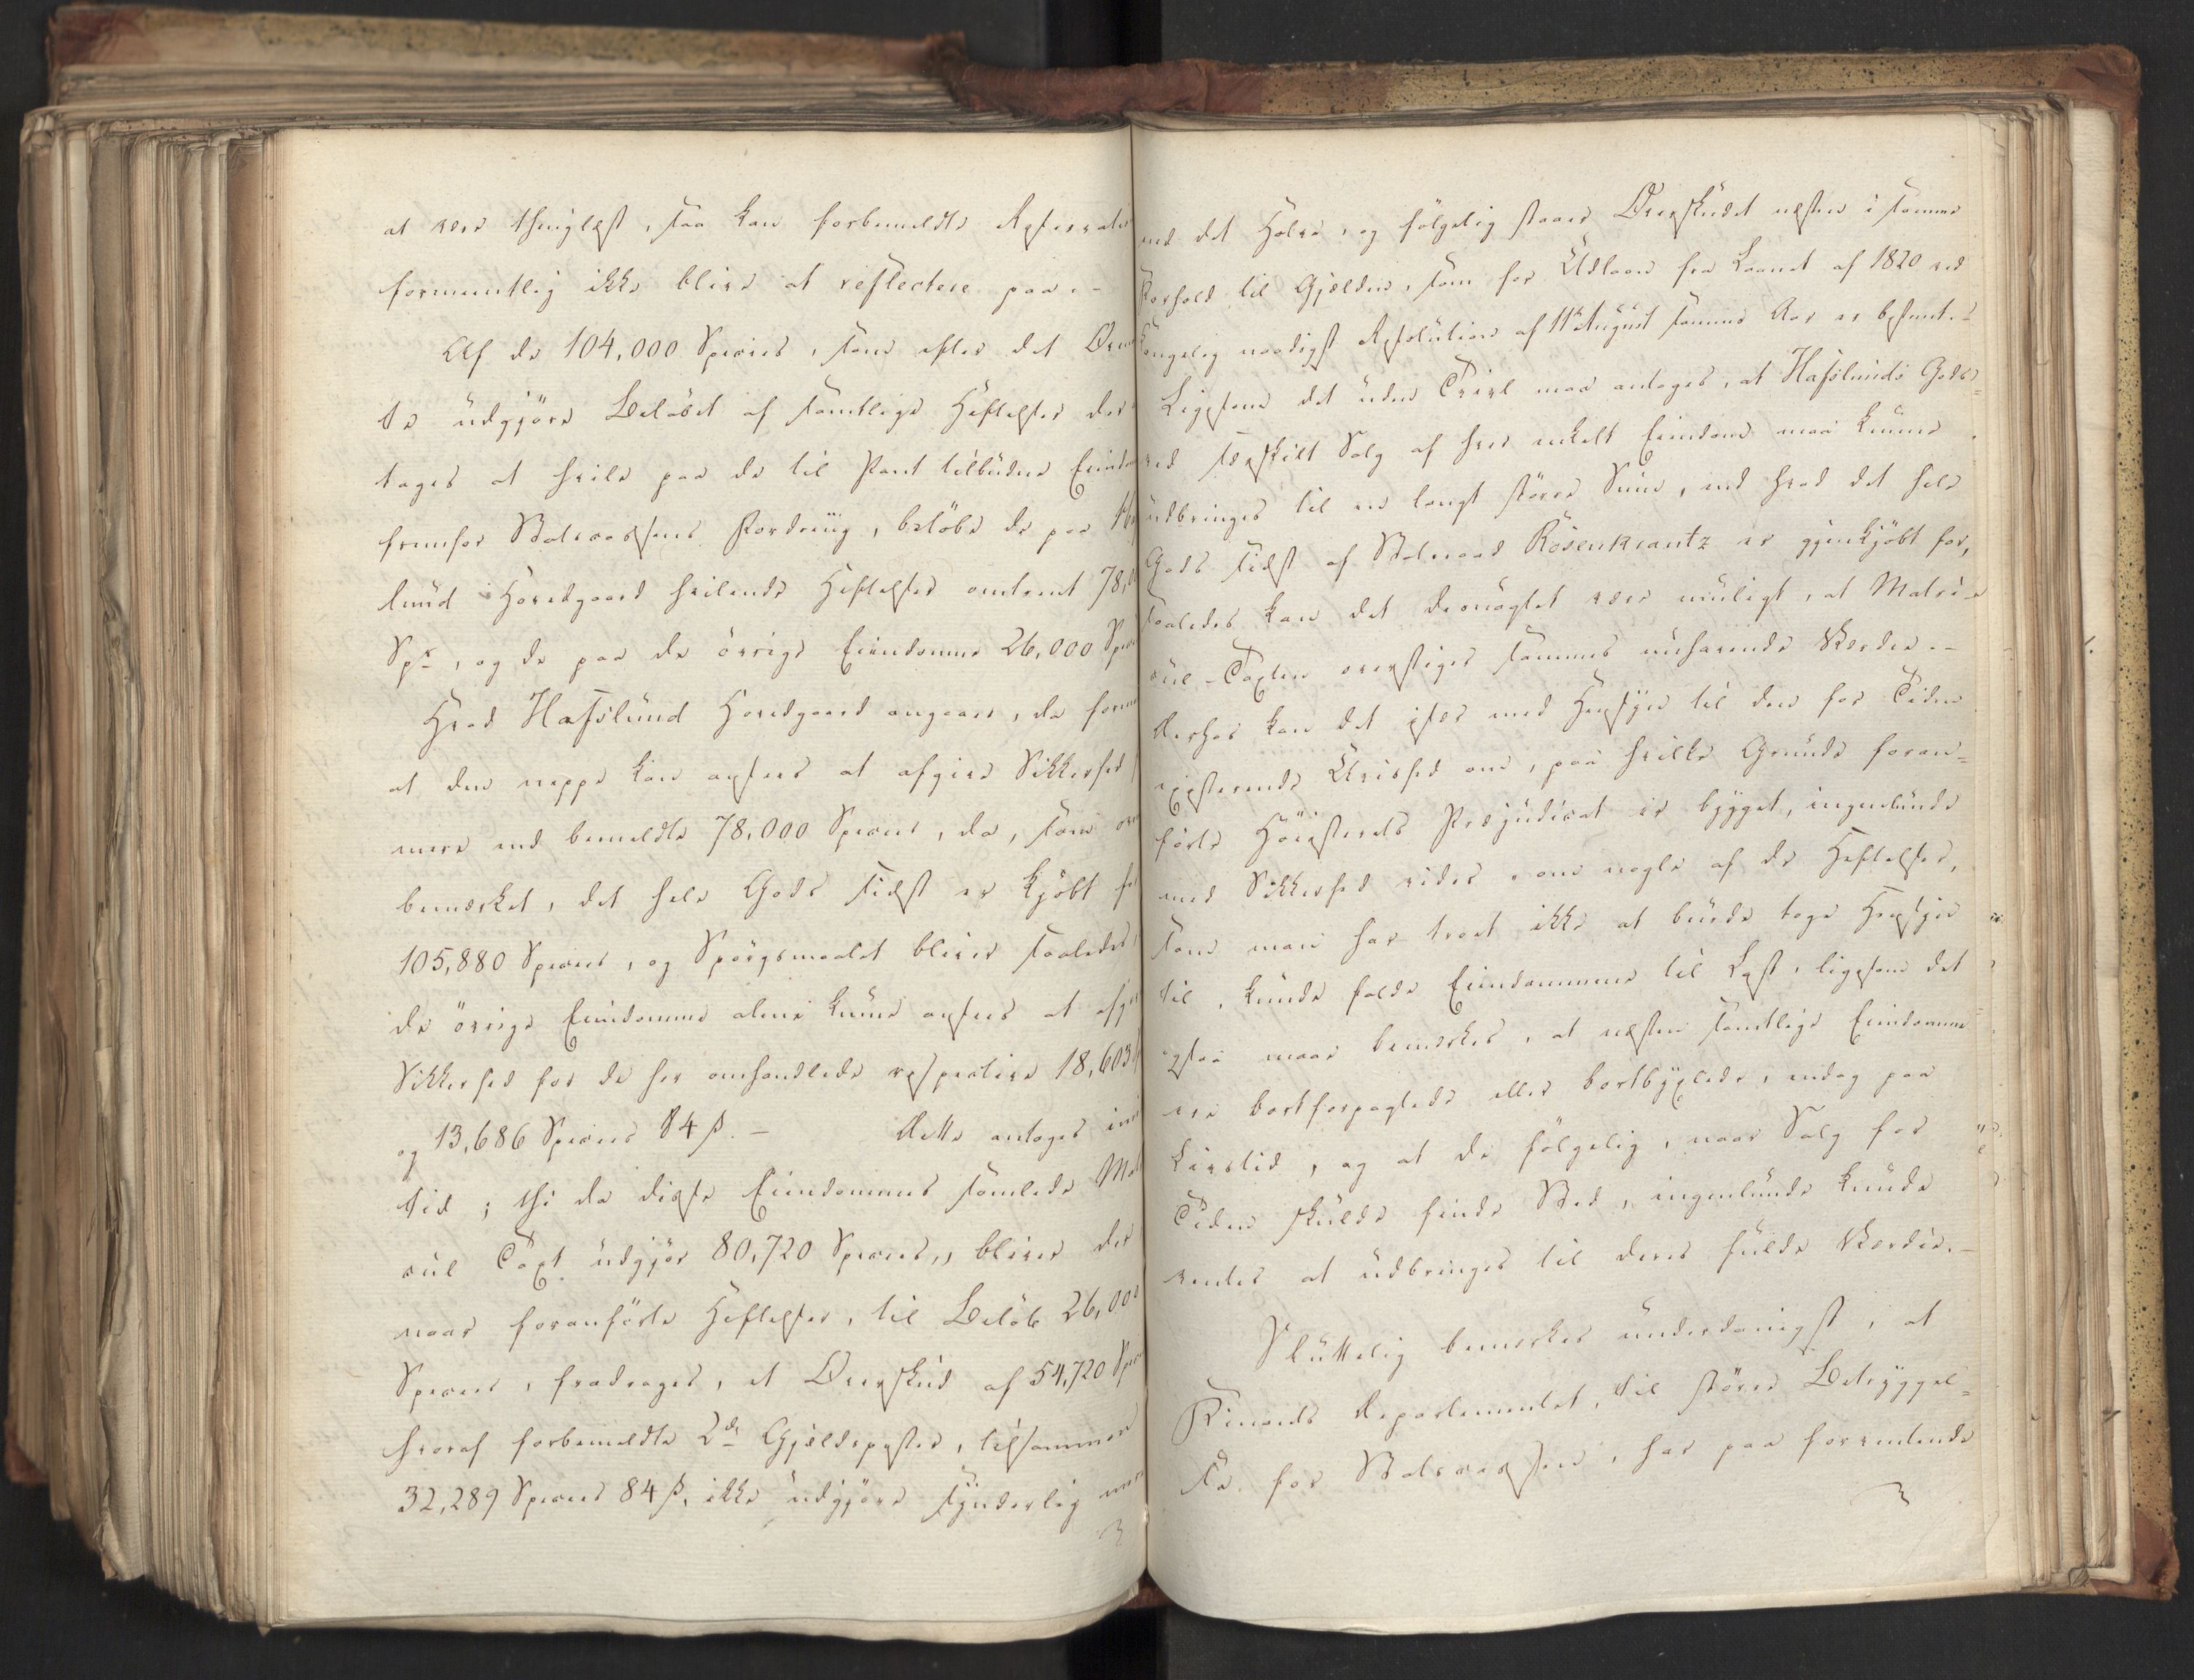 at være thinglæst, saa kan forbemeldte
formeentlig ikke blive at reflectere paa.-
Af de 104,000 Species, som efter det
te udgjøre Beløbet af samtlige Heftelser der
tages at hvile paa de til Pant tilbudne
fremfor Statscassens Fordring, beløbe de paa
lund Hovedgaard hvilende Heftelser omtrent
Spr, og de paa de øvrige Eiendomme 26,000
Hvad Hafslund Hovedgaard angaaer, da
at den neppe kan ansees at afgive Sikkerhed
mere end bemeldte 78,000 Species, da, som
bemærket, det hele Gods sidst er kjøbt
105,880 Species, og Spørgsmaalet bliver saaledes,
de øvrige Eiendomme alene kunne ansees at
Sikkerhed for de her omhandlede respective 18,603
og 13,686 Species 84 ß. - Dette antages
tid; thi da disse Eiendommes samlede
cül Taxt udgjør 80,720 Species, bliver der
naar foranførte Heftelser, til Beløb 26,000
Species, fradrages, et Overskud af 54,720
hvoraf forbemeldte 2de Gjældsposter, tilsammen
32,289 Species 84 ß, ikke udgjøre synderlig
end det Halve, og følgelig staaer Overskudet næsten i samme
Forhold til Gjælden, som for Udlaan fra Laanet af 1820 ved
Kongelig naadigst Resolution af 11te August samme Aar er bestemt.-
Ligesom det uden Tvivl maa antages, at Hafslunds Gods
ved særskilt Salg af hver enkelt Eiendom maa kunne
udbringes til en langt større Sum, end hvad det hele
Gods sidst af Statsraad Rosenkrantz er gjenkjøbt for,
saaledes kan det desuagtet være muligt, at Matri-
cül-Taxten overstiger sammes nuhavende Værdie.-
Derhos kan det især med Hensyn til den for Tiden
existerende Uvished om, paa hvilke Grunde foran-
førte Høiesterets Præjudicat er bygget, ingenlunde
med Sikkerhed vides, om nogle af de Heftelser,
som man har troet ikke at burde tage Hensyn
til, kunde falde Eiendommene til Last, ligesom det
ogsaa maa bemærkes, at næsten samtlige Eiendomme
ere bortforpagtede eller bortbyxlede, endog paa
Livstid, og at de følgelig, naar Salg for
Tiden skulde finde Sted, ingenlunde kunde
ventes at udbringes til deres fulde Værdie.-
Sluttelig bemærkes underdanigst, at
Finants Departementet, til større Betryggel-
se for Statscassen, har paa forventende